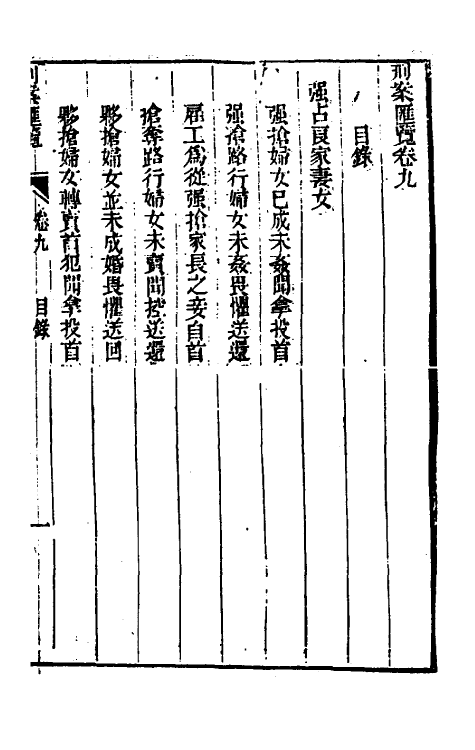 刑案匯覽卷九
目錄
强占良家妻女
强搶婦女已成未姦聞拿投首
强搶路行婦女未姦畏懼送還
雇工爲從强搶家長之妾自首
搶奪路行婦女未賣聞控送還
夥搶婦女並未成婚畏懼送回
夥搶婦女轉賣首犯聞拿投首
刑案匯覽 卷九 目錄